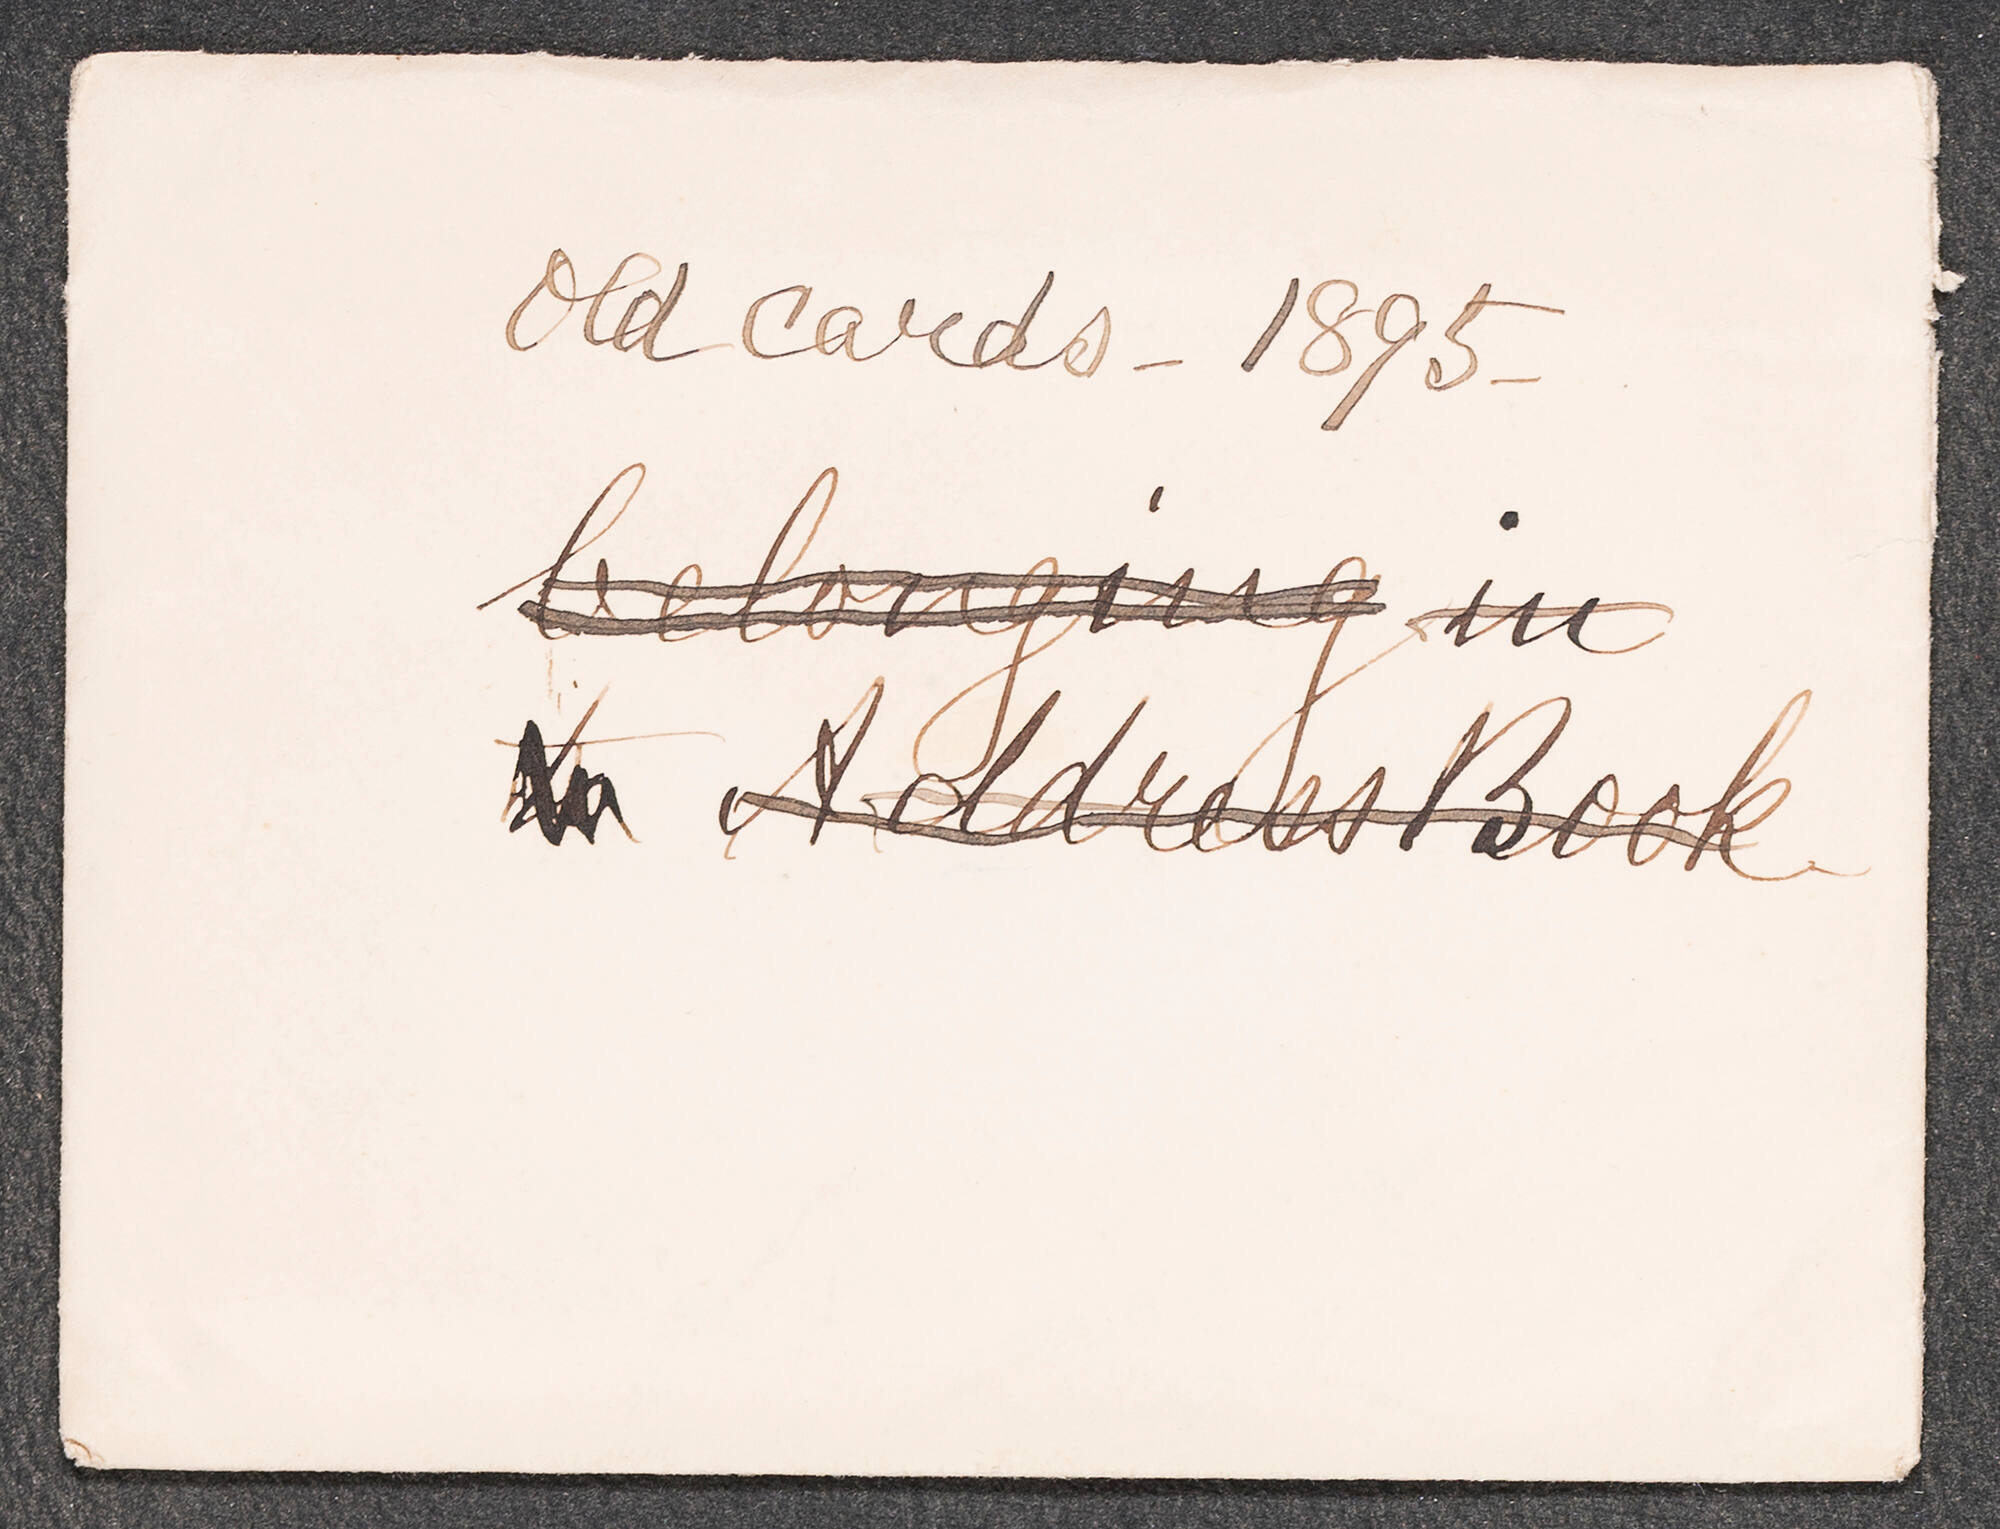 Old cards - 1895 -
belonging in
Address Book